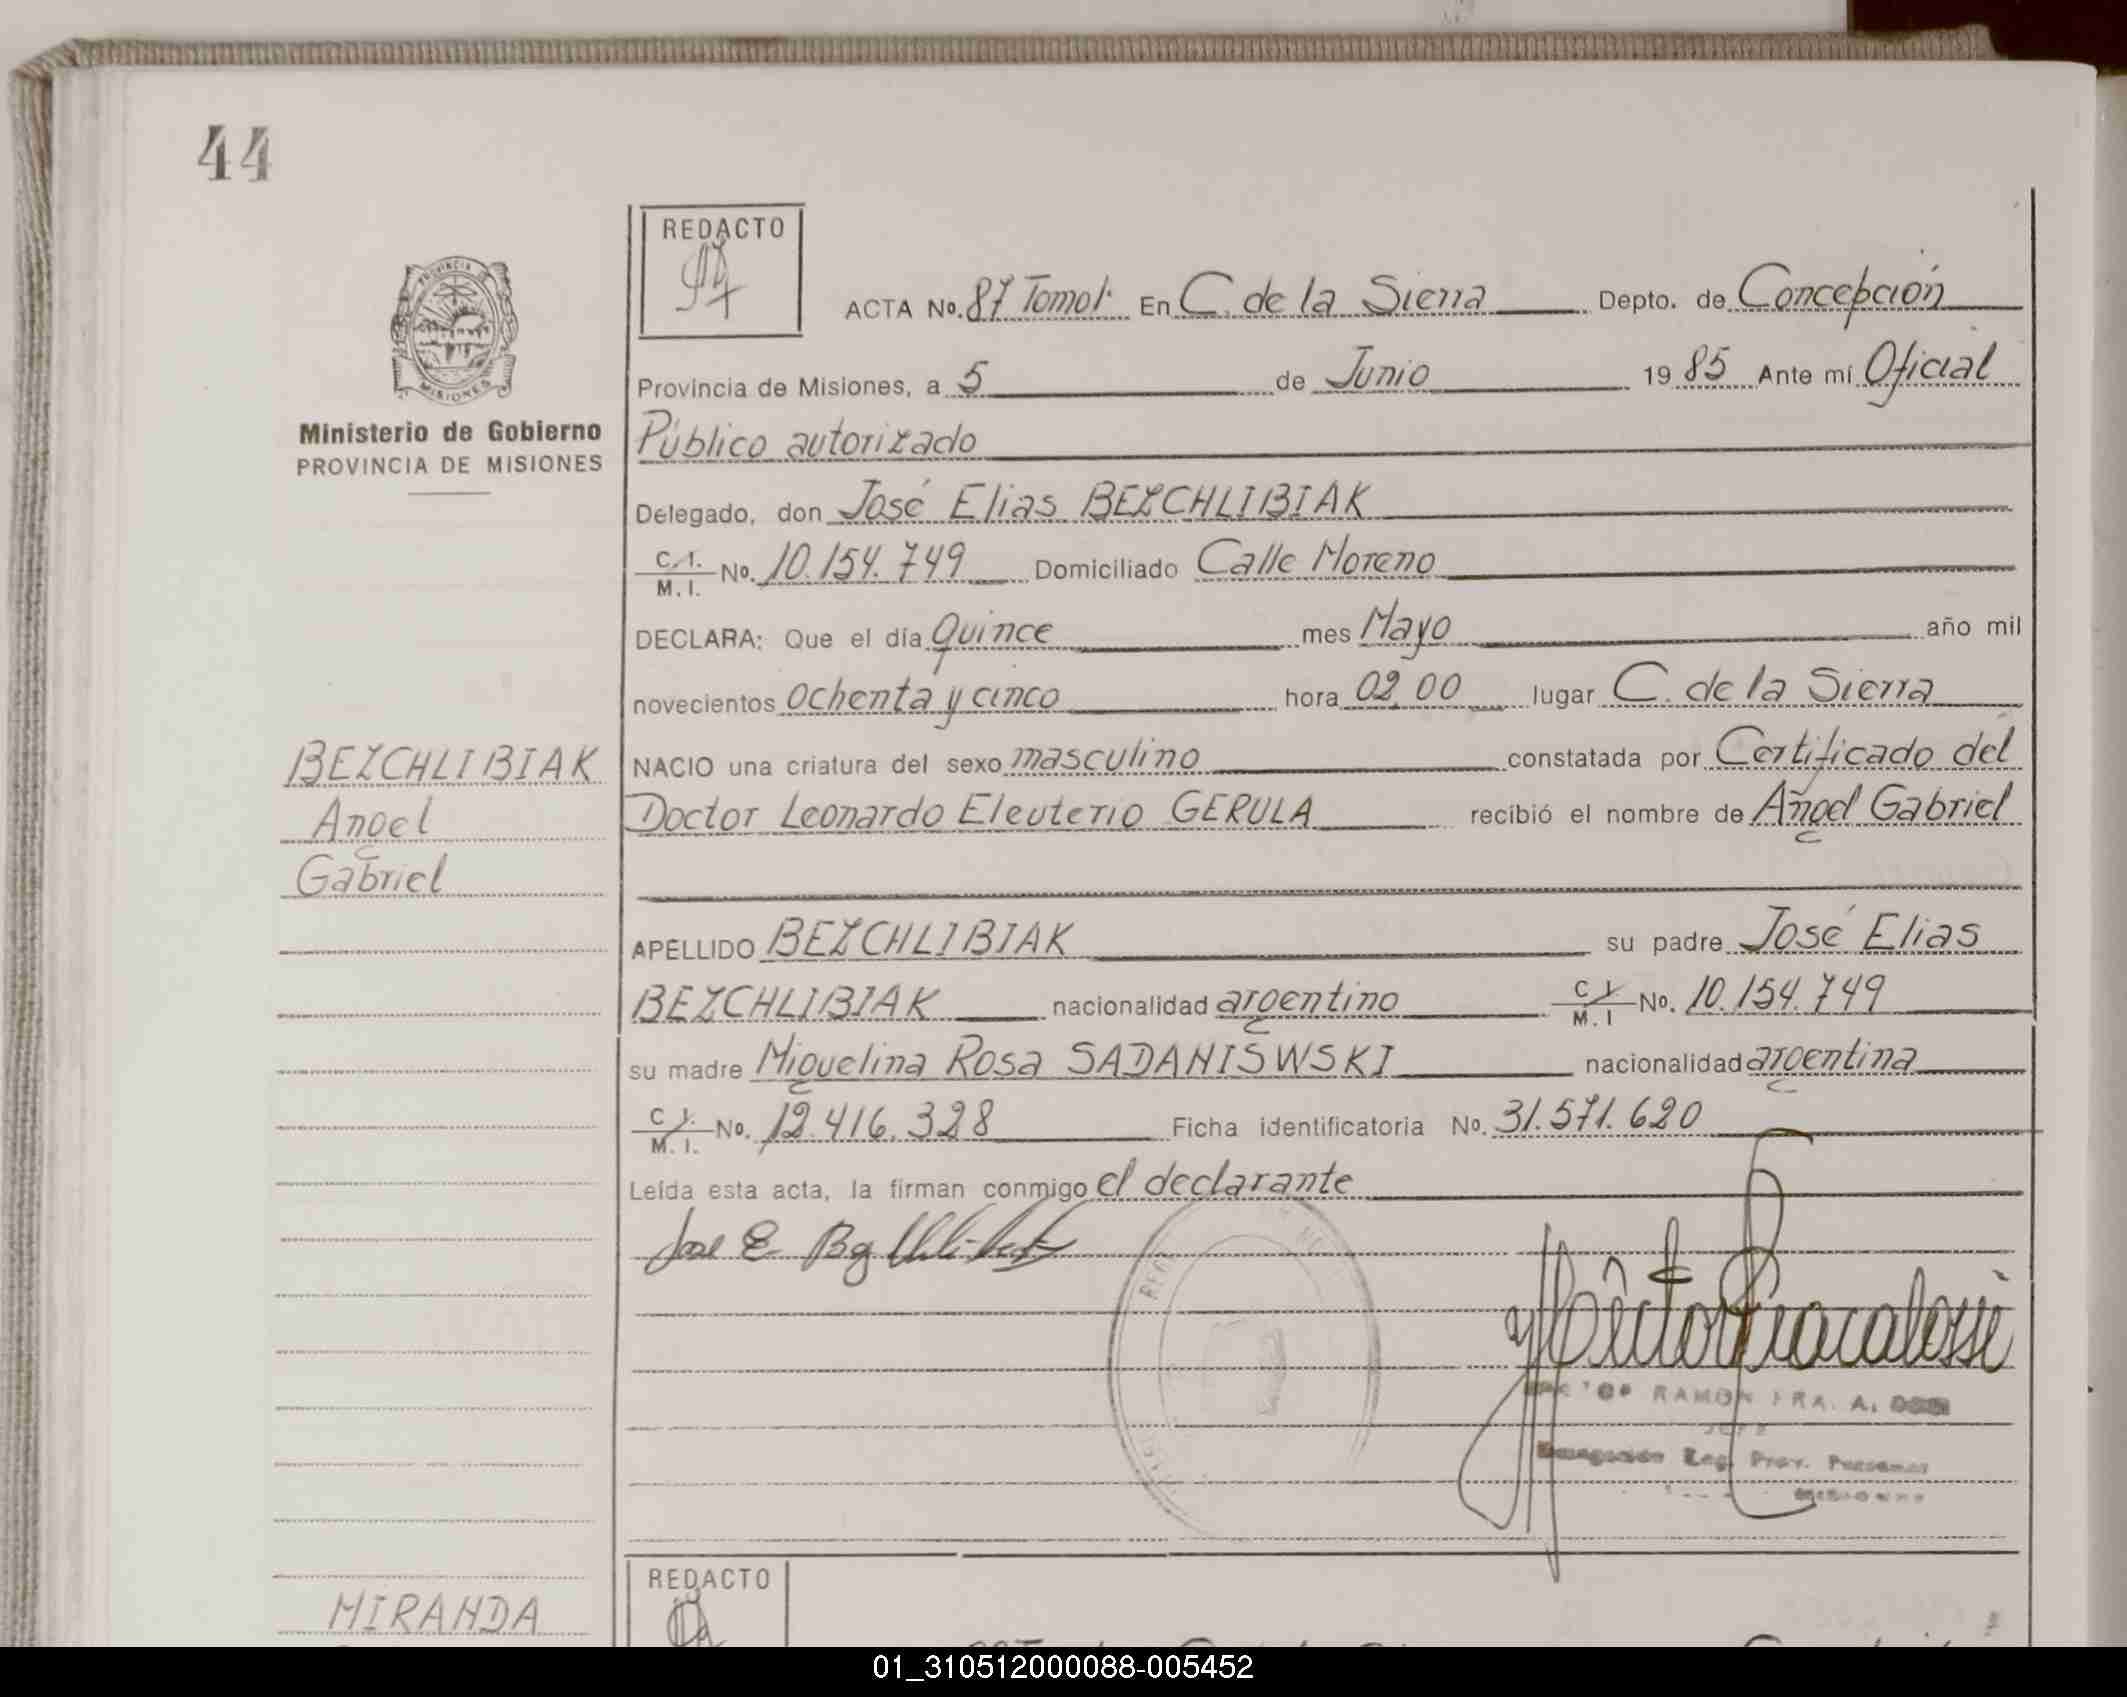 44
REDACTO
ACTA No. 87 Tomo I. En C. de la Sierra Depto. de Concepción
Provincia de Misiones, a 5 de Junio 19 85 Ante mí Oficial
Público autorizado
Delegado, don José Elias BEZCHLIBIAK
C. I. M. I. No. 10.154.749 Domiciliado Calle Moreno
DECLARA: Que el día quince mes Mayo año mil
novecientos ochenta y cinco hora 02,00 lugar C. de la Sierra
NACIO una criatura del sexo masculino constatada por Certificado del
Doctor Leonardo Eleuterio GERULA recibió el nombre de Angel Gabriel
APELLIDO BEZCHLIBIAK su padre José Elias
BEZCHLIBIAK nacionalidad argentino C I. M. I No. 10.154.749
su madre Miguelina Rosa SADANISWSKI nacionalidad argentina
C I. M. I. No. 12.416.328 Ficha identificatoria No. 31.571.620
Leída esta acta, la firman conmigo el declarante
PROVINCIA DE
MISIONES
Ministerio de Gobierno
PROVINCIA DE MISIONES
BEZCHLIBIAK
Angel
Gabriel
Jose E.
Hector Fracalossi
RAMON
Reg. Prov. Personas
MISIONES
REDACTO
MIRANDA
01_310512000088-005452